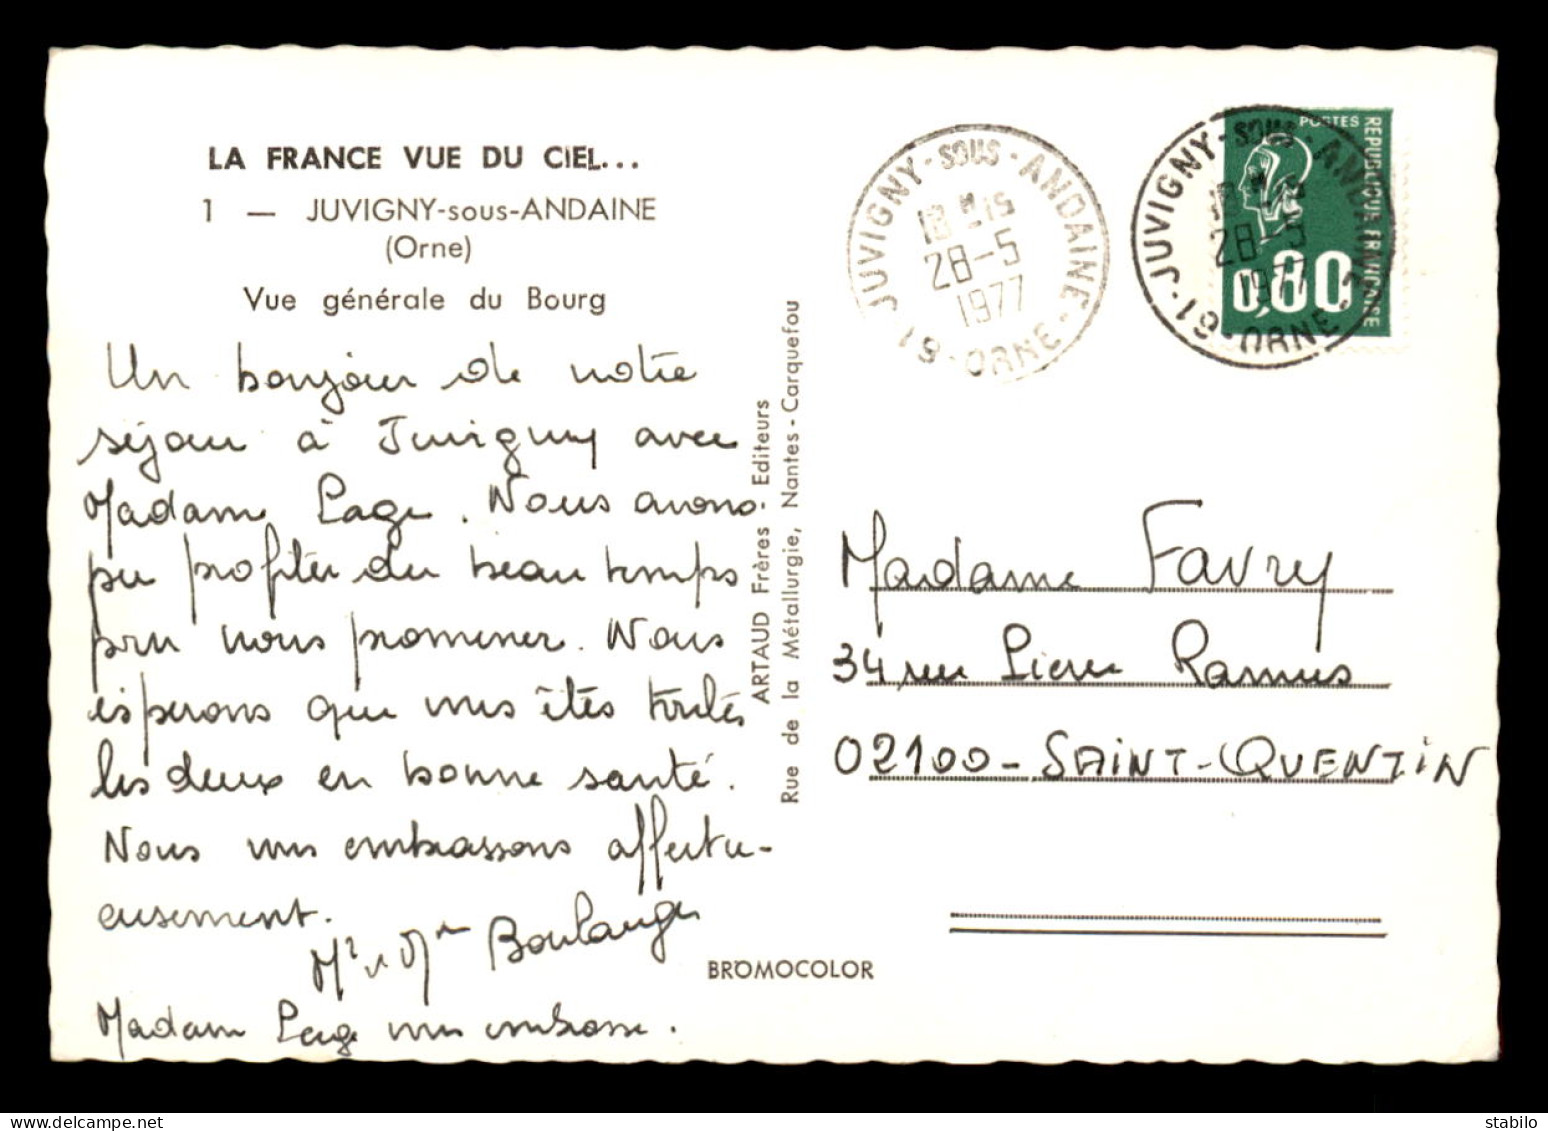 LA FRANCE VUE DU CIEL...
1 — JUVIGNY-sous-ANDAINE
(Orne)
Vue générale du Bourg
Un bonjour de notre
séjour à Juvigny avec
Madame Lage. Nous avons
pu profiter du beau temps
pru nous promener. Nous
espérons que vous êtes toutes
les deux en bonne santé.
Nous vous embrassons affectu-
eusement.
Mr & Mme Boulanger
Madame Lage vous embrasse.
ARTAUD Frères - Editeurs
Rue de la Métallurgie, Nantes-Carquefou
BROMOCOLOR
JUVIGNY-SOUS-ANDAINE
18 H 15
28-5
1977
61-ORNE
JUVIGNY-SOUS-ANDAINE
28-5
1977
61-ORNE
POSTES
REPUBLIQUE FRANCAISE
0,80
Madame Favry
34 rue Pierre Ramus
02100 - SAINT-QUENTIN
stabilo.delcampe.net